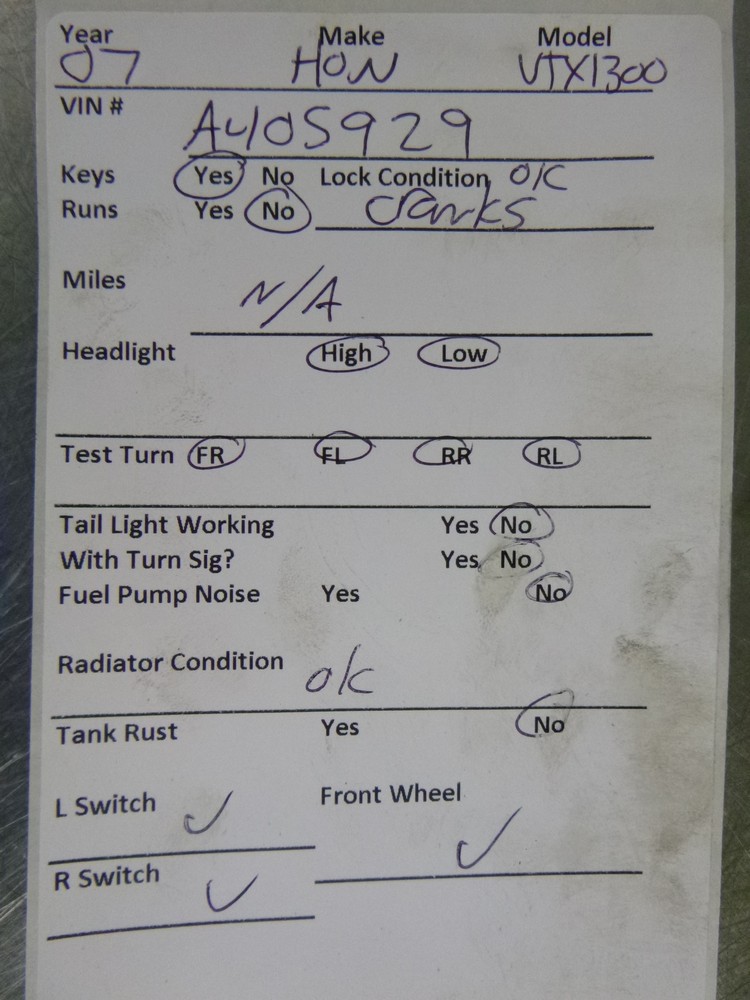 Year Make Model
07 HON VTX1300
VIN # A405929
Keys Yes No Lock Condition o/c
Runs Yes No cranks
Miles N/A
Headlight High Low
Test Turn FR FL RR RL
Tail Light Working Yes No
With Turn Sig? Yes No
Fuel Pump Noise Yes No
Radiator Condition o/c
Tank Rust Yes No
L Switch ✓ Front Wheel ✓
R Switch ✓